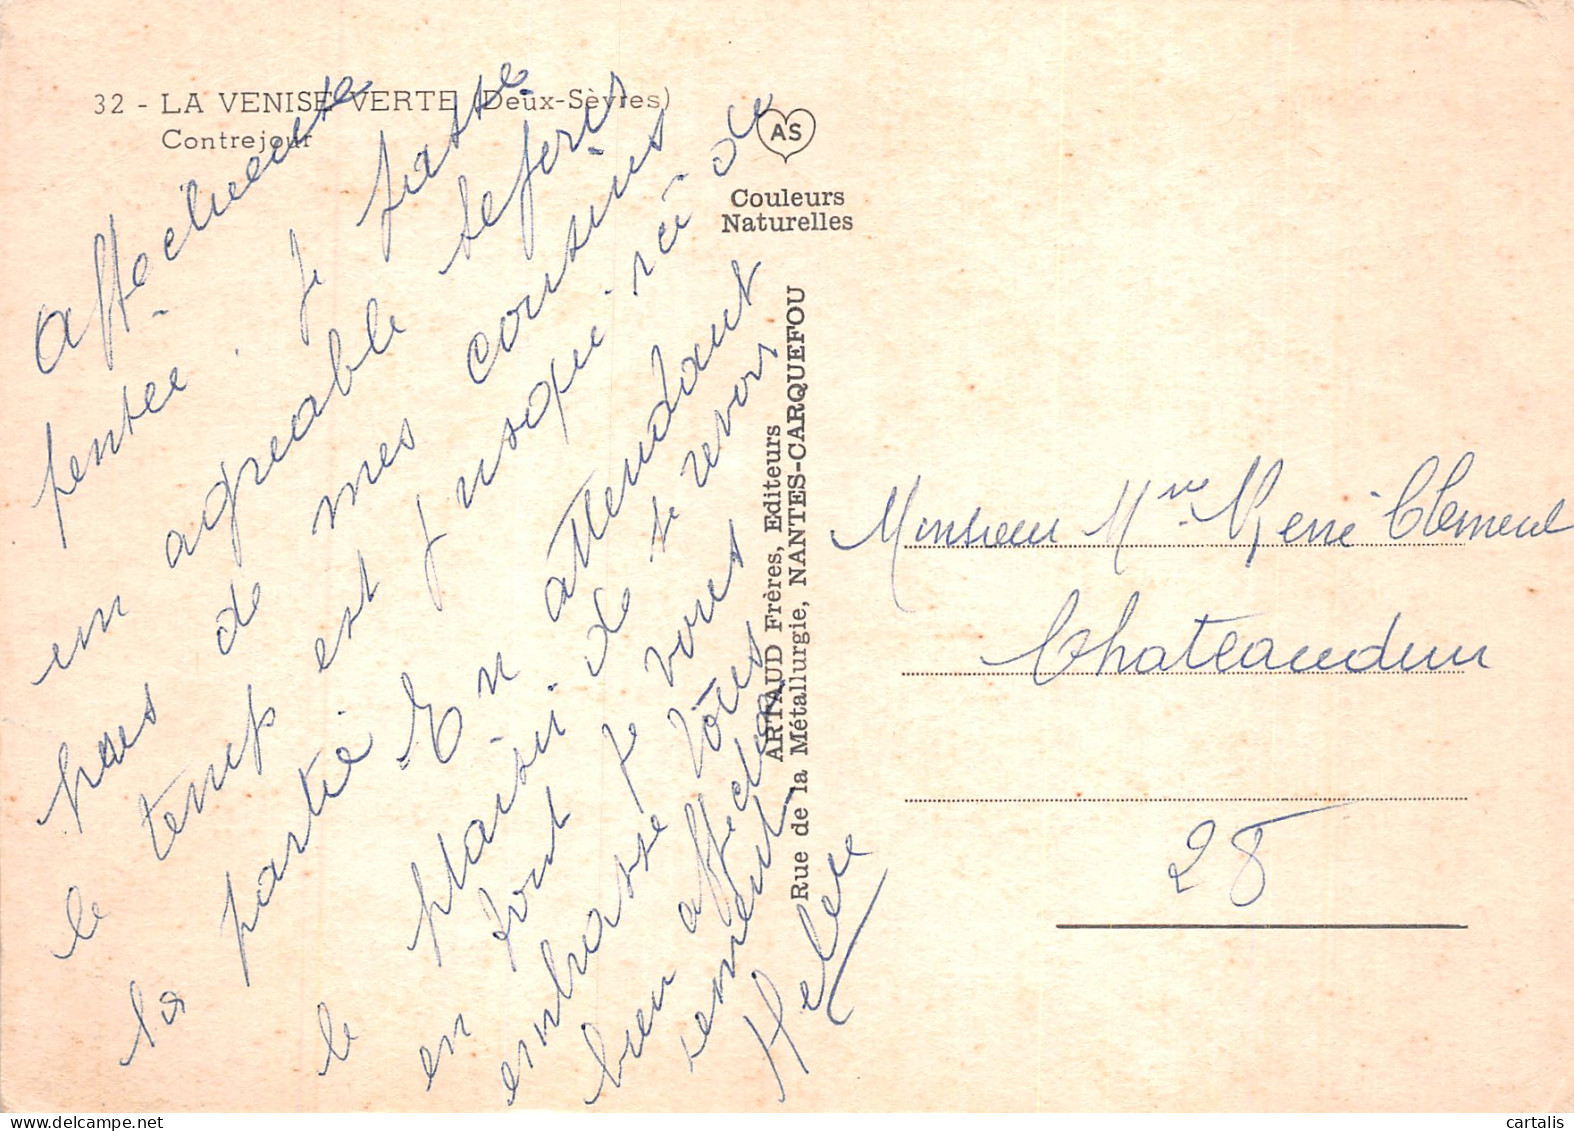 32 - LA VENISE VERTE (Deux-Sèvres)
Contrejour
AS
Couleurs
Naturelles
ARTAUD Frères, Editeurs
Rue de la Métallurgie, NANTES-CARQUEFOU
Affectueuse
pensée. je passe
un agréable séjour
de mes cousins
le temps est jusqu'ici de
la partie En attendant
le plaisir de se revoir
en font je vous
embrasse tous
bien affectueu
sement
Monsieur Mme René Clément
Chateaudun
28
cartalis
delcampe.net